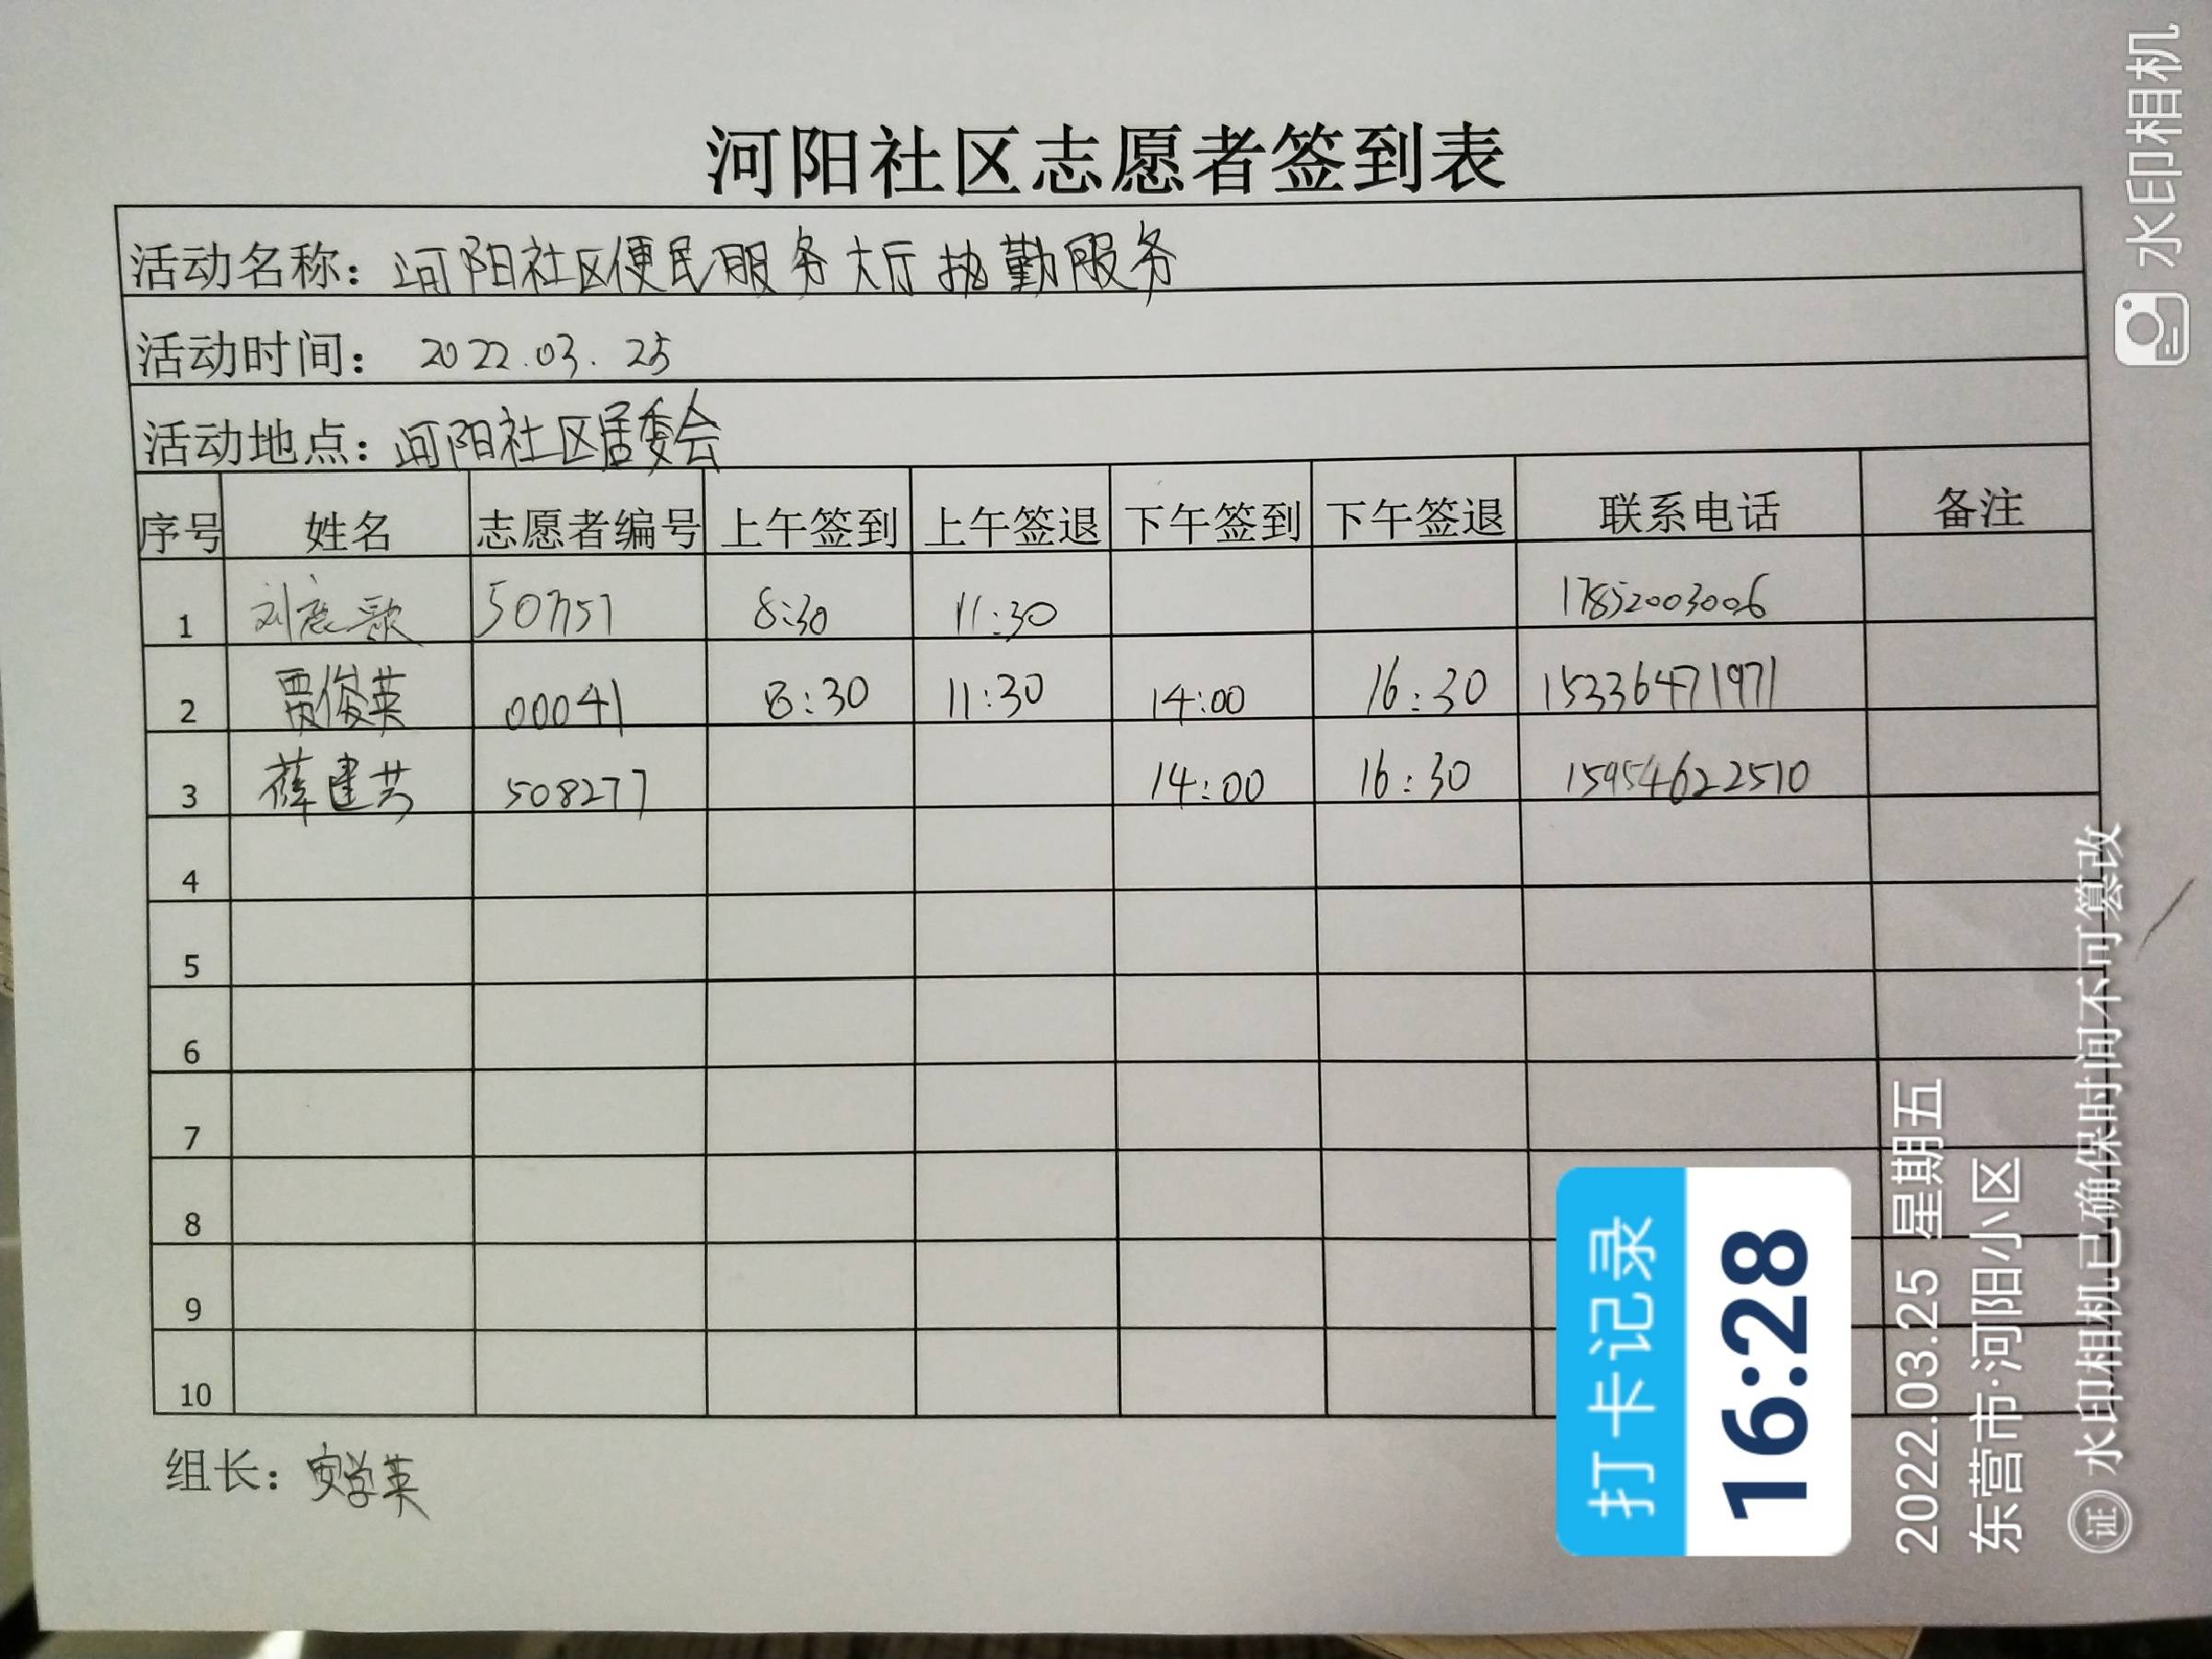 河阳社区志愿者签到表
活动名称：河阳社区便民服务大厅执勤服务
活动时间： 2022.03.25
活动地点：河阳社区居委会
序号 姓名 志愿者编号 上午签到 上午签退 下午签到 下午签退 联系电话 备注
1 刘 歌 8:30 11:30 17852003006
2 贾俊英 00041 8:30 11:30 14:00 16:30 15336471971
3 薛建芳 508277 14:00 16:30 15954622510
4
5
6
7
8
9
10
组长：安学英
打卡记录
16:28
2022.03.25 星期五
东营市·河阳小区
证 水印相机已确保时间不可篡改
水印相机